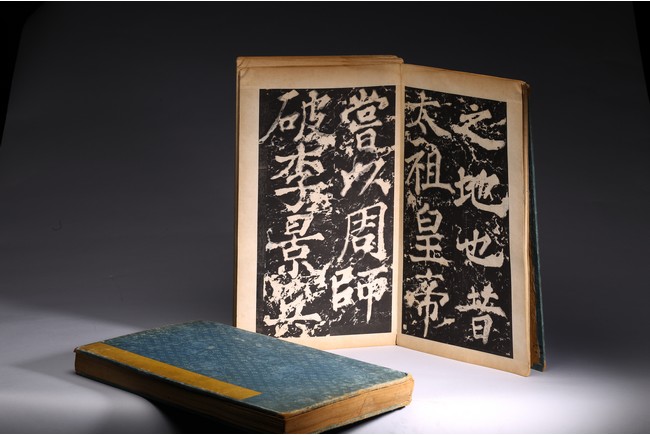 之地也昔
太祖皇帝
嘗以周師
破李景兵